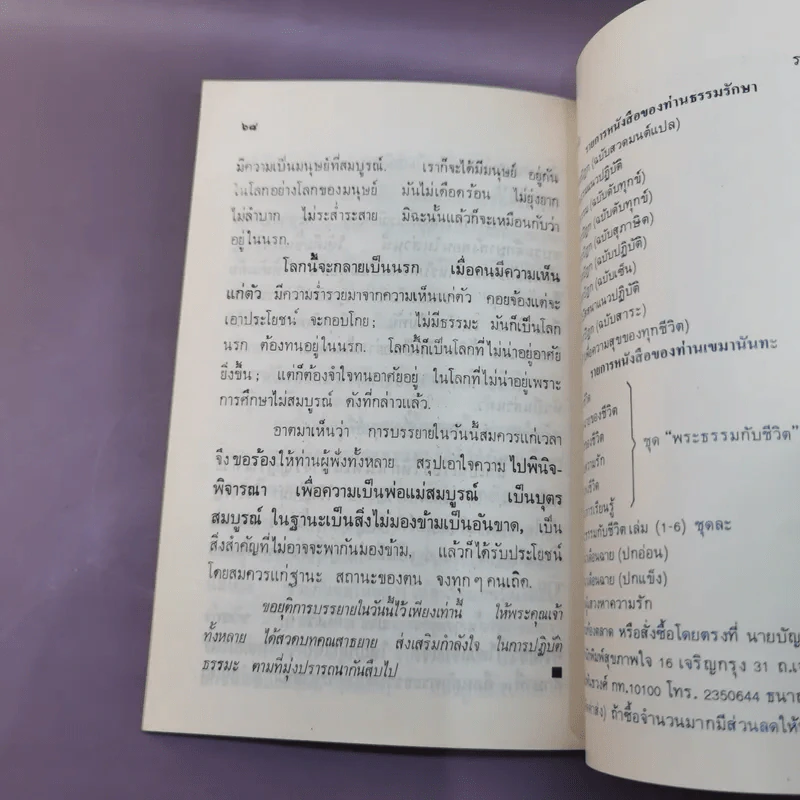 ๖๘
มีความเป็นมนุษย์ที่สมบูรณ์. เราก็จะได้มีมนุษย์ อยู่กัน
ในโลกอย่างโลกของมนุษย์ มันไม่เดือดร้อน ไม่ยุ่งยาก
ไม่ลำบาก ไม่ระส่ำระสาย มิฉะนั้นแล้วก็จะเหมือนกับว่า
อยู่ในนรก.
โลกนี้จะกลายเป็นนรก เมื่อคนมีความเห็น
แก่ตัว มีความร่ำรวยมาจากความเห็นแก่ตัว คอยจ้องแต่จะ
เอาประโยชน์ จะกอบโกย; ไม่มีธรรมะ มันก็เป็นโลก
นรก ต้องทนอยู่ในนรก. โลกนี้ก็เป็นโลกที่ไม่น่าอยู่อาศัย
ยิ่งขึ้น; แต่ก็ต้องจำใจทนอาศัยอยู่ ในโลกที่ไม่น่าอยู่เพราะ
การศึกษาไม่สมบูรณ์ ดังที่กล่าวแล้ว.
อาตมาเห็นว่า การบรรยายในวันนี้สมควรแก่เวลา
จึง ขอร้อง ให้ท่านผู้ฟังทั้งหลาย สรุปเอาใจความ ไปพินิจ-
พิจารณา เพื่อความเป็นพ่อแม่สมบูรณ์ เป็นบุตร
สมบูรณ์ ในฐานะเป็นสิ่งไม่มองข้ามเป็นอันขาด, เป็น
สิ่งสำคัญที่ไม่อาจจะพากันมองข้าม, แล้วก็ได้รับประโยชน์
โดยสมควรแก่ฐานะ สถานะของตน จงทุกๆคนเถิด.
ขอยุติการบรรยายในวันนี้ไว้เพียงเท่านี้ ให้พระคุณเจ้า
ทั้งหลาย ได้สวดบทคณสาธยาย ส่งเสริมกำลังใจ ในการปฏิบัติ
ธรรมะ ตามที่มุ่งปรารถนากันสืบไป
รายการหนังสือของท่านธรรมรักษา
(ฉบับสวดมนต์แปล)
แนวปฏิบัติ
(ฉบับดับทุกข์)
(ฉบับดับทุกข์)
(ฉบับสุภาษิต)
(ฉบับปฏิบัติ)
(ฉบับเซ็น)
แนวปฏิบัติ
(ฉบับสาระ)
ความสุขของทุกชีวิต)
รายการหนังสือของท่านเขมานันทะ
ชีวิต
ของชีวิต
ชีวิต
ความรัก
ชีวิต
การเรียนรู้
ชุด "พระธรรมกับชีวิต"
ธรรมกับชีวิต เล่ม (1-6) ชุดละ
(ปกอ่อน)
(ปกแข็ง)
หาความรัก
หรือสั่งซื้อโดยตรงที่ นายบัญ
พิมพ์สุขภาพใจ 16 เจริญกรุง 31 ถ.เจ
วงศ์ กท.10100 โทร. 2350644 ธนา
ส่ง) ถ้าซื้อจำนวนมากมีส่วนลดให้